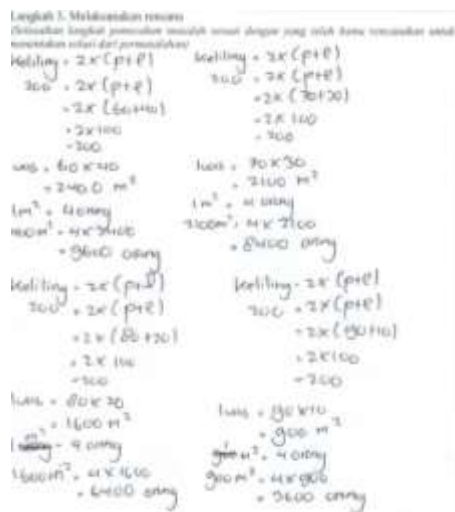 Langkah 3. Melaksanakan rencana
(Selesaikan langkah pemecahan masalah sesuai dengan yang telah kamu rencanakan untuk
menentukan solusi dari permasalahan)
Keliling = 2x (p+l)
200 = 2x (p+l)
= 2x (60+40)
= 2x100
= 200
luas = 60 x 40
= 2400 m²
1m² = 4 orang
2400m² = 4x 2400
= 9600 orang
Keliling = 2x (p+l)
200 = 2x (p+l)
= 2x (70+30)
= 2x 100
= 200
luas = 70 x 30
= 2100 m²
1m² = 4 orang
2100m² = 4x 2100
= 8400 orang
Keliling = 2x (p+l)
200 = 2x (p+l)
= 2x (80+20)
= 2x 100
= 200
luas = 80x 20
= 1600 m²
1 m² = 4 orang
1600m² = 4x 1600
= 6400 orang
Keliling = 2x (p+l)
200 = 2x (p+l)
= 2x (90+10)
= 2x100
= 200
luas = 90x10
= 900 m²
1 m² = 4 orang
900 m² = 4x 900
= 3600 orang